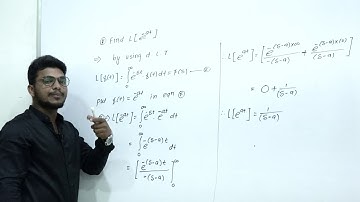 ⊛ Find L[e^{at}]
⇒ by using d L T
L[f(t)] = ∫_0^∞ e^{-st} f(t) dt = F(s) — ⊛
put f(t) = e^{at} in eqn ⊛
L[e^{at}] = ∫_0^∞ e^{-st} e^{at} dt
= ∫_0^∞ e^{-(s-a)t} dt
= [e^{-(s-a)t} / -(s-a)]_0^∞
∴ L[e^{at}] = [e^{-(s-a)×∞} / -(s-a) + e^{-(s-a)×(0)} / (s-a)]
= 0 + 1/(s-a)
∴ L[e^{at}] = 1/(s-a)